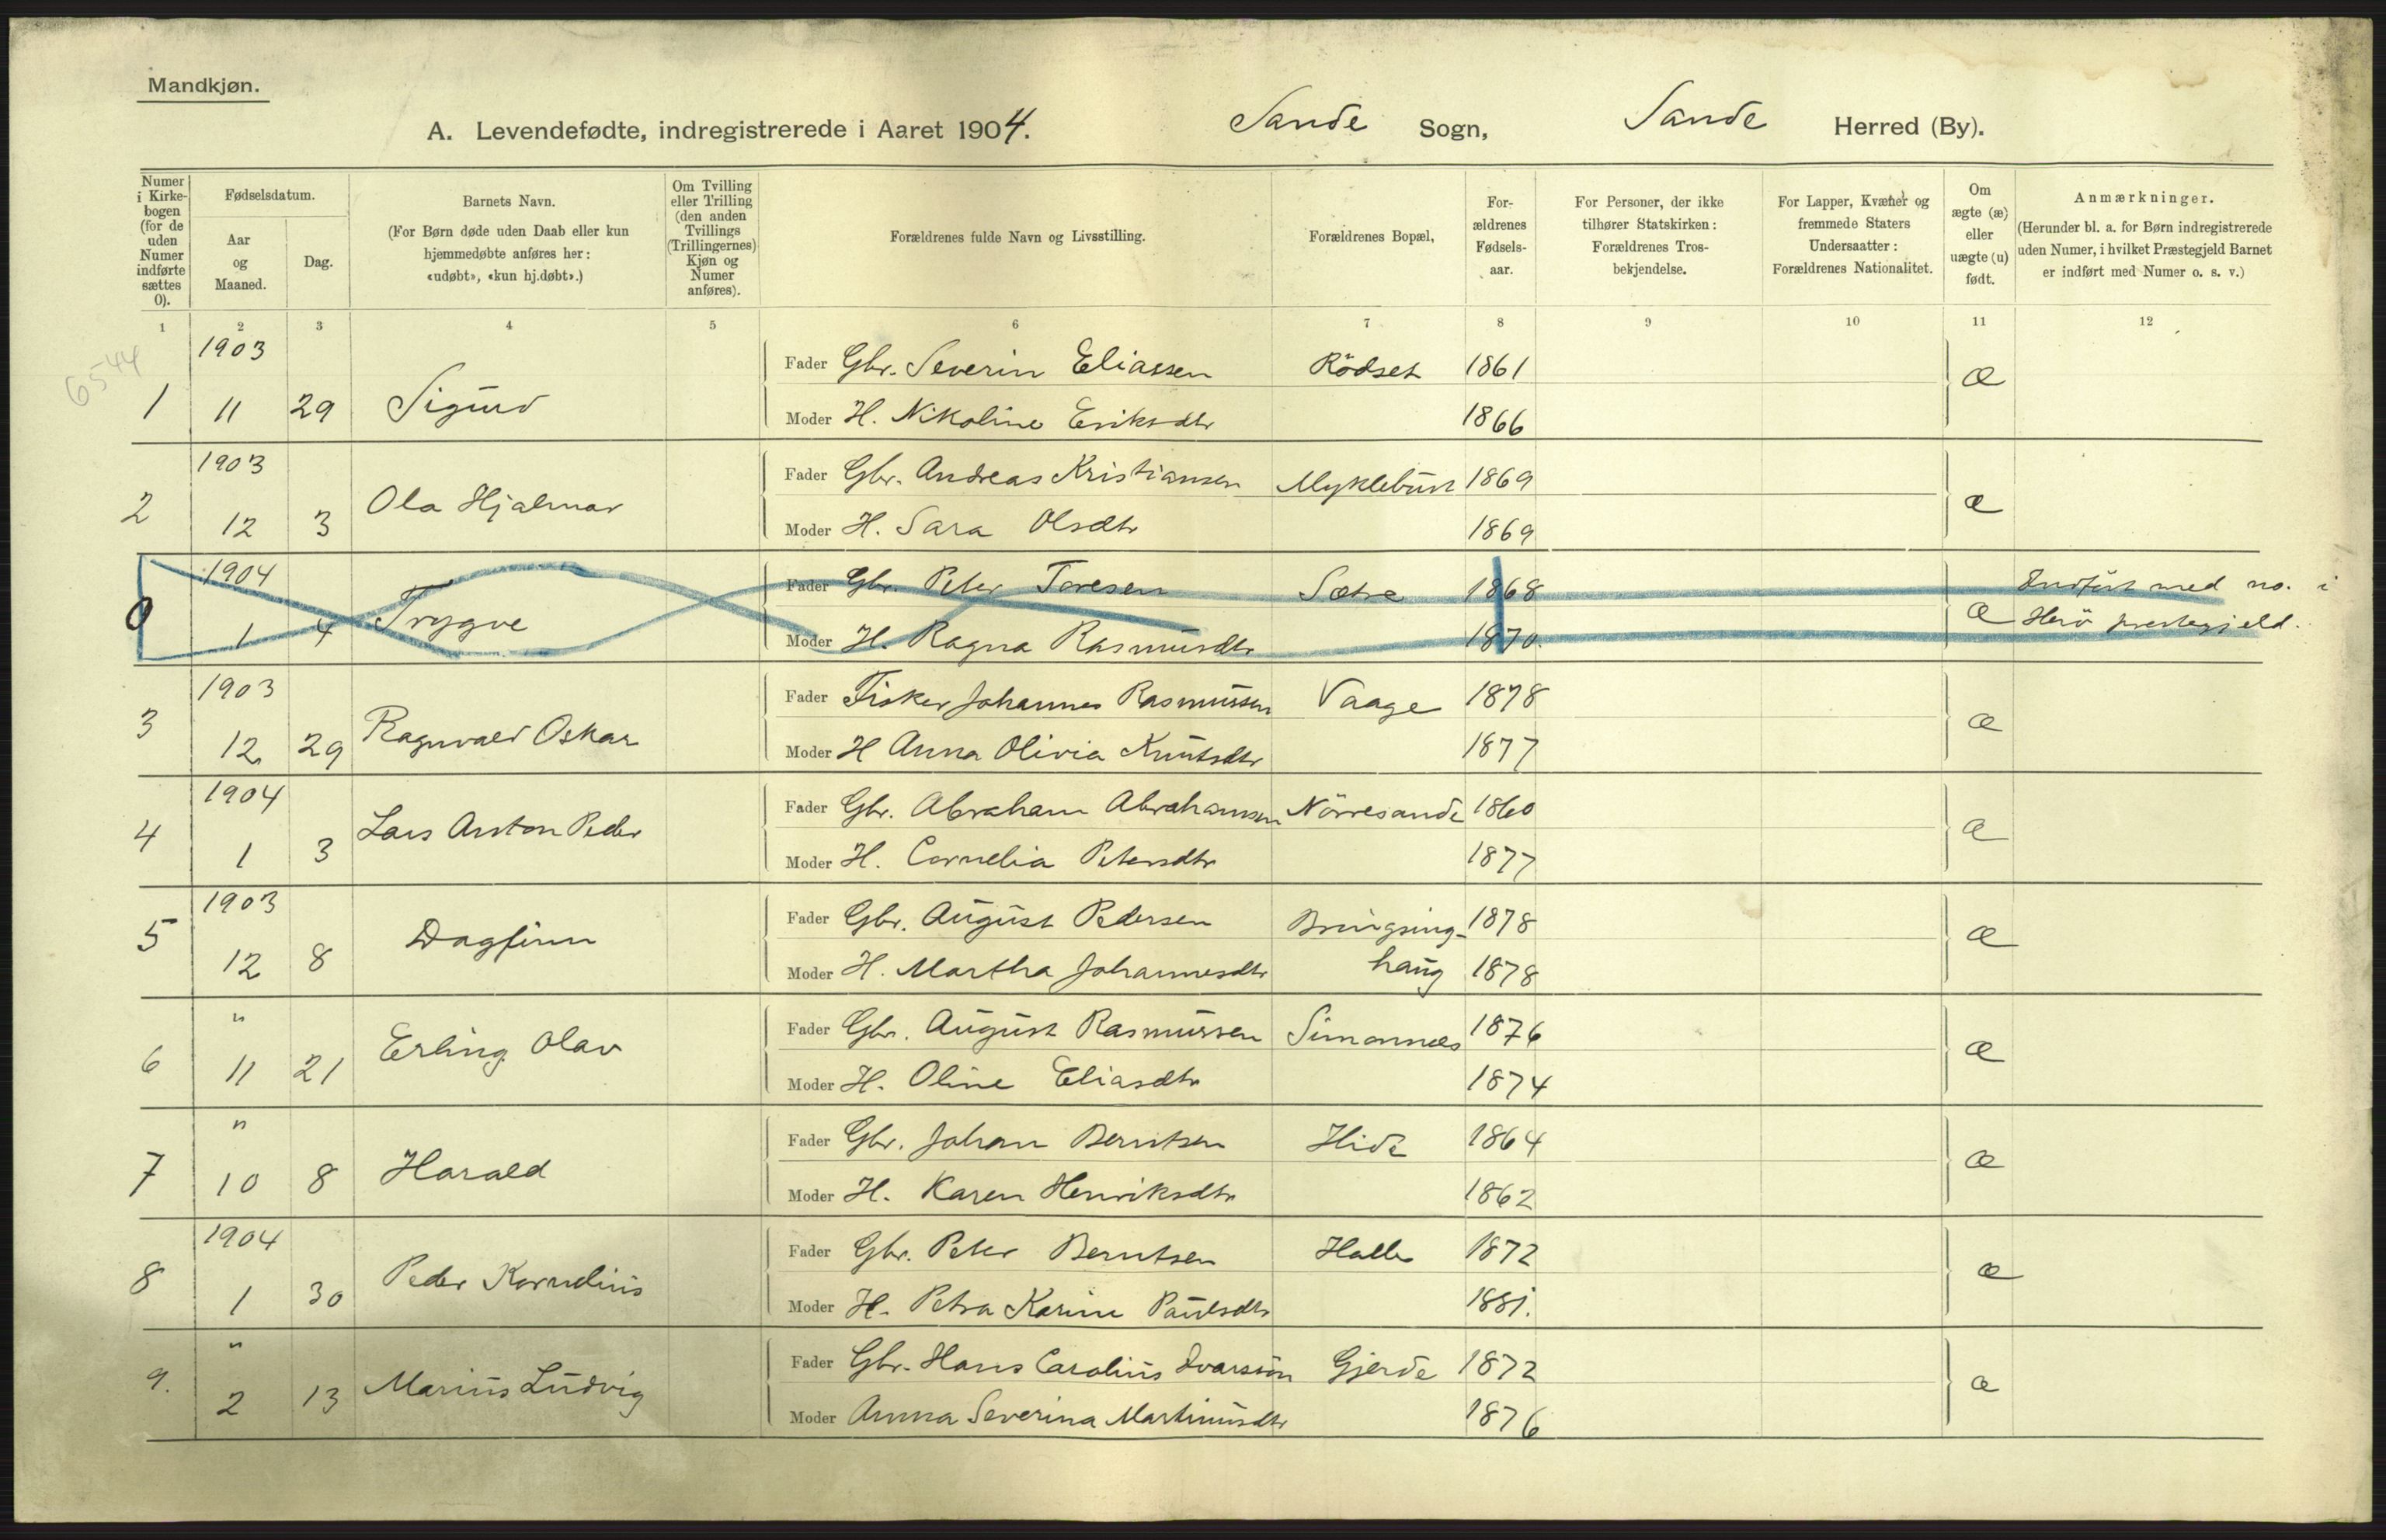 Mandkjøn.
A. Levendefødte, indregistrerede i Aaret 1904. Sande Sogn, Sande Herred (By).
Numer i Kirkebogen (for de uden Numer indførte sættes 0).
Fødselsdatum.
Aar og Maaned.
Dag.
Barnets Navn.
(For Børn døde uden Daab eller kun hjemmedøbte anføres her: «udøbt», «kun hj.døbt».)
Om Tvilling eller Trilling (den anden Tvillings (Trillingernes) Kjøn og Numer anføres).
Forældrenes fulde Navn og Livsstilling.
Forældrenes Bopæl,
Forældrenes Fødselsaar.
For Personer, der ikke tilhører Statskirken: Forældrenes Trosbekjendelse.
For Lapper, Kvæner og fremmede Staters Undersaatter: Forældrenes Nationalitet.
Om ægte (æ) eller uægte (u) født.
Anmærkninger.
(Herunder bl. a. for Børn indregistrerede uden Numer, i hvilket Præstegjeld Barnet er indført med Numer o. s. v.)
1 2 3 4 5 6 7 8 9 10 11 12
6544
1903
Fader Gbr. Severin Eliassen Rödset 1861
1 11 29 Sigurd æ
Moder H. Nikoline Eriksdtr 1866
1903
Fader Gbr. Andreas Kristiansen Myklebust 1869
2 12 3 Ola Hjalmar æ
Moder H. Sara Olsdtr 1869
1904
Fader Gbr. Peter Toresen Sætre 1868 Indført med no. i
0 1 4 Trygve æ Herö prestegjeld.
Moder H. Ragna Rasmusdtr 1870.
1903
Fader Fisker Johannes Rasmussen Vaage 1878
3 12 29 Ragnvald Oskar æ
Moder H Anna Olivia Knutsdtr 1877
1904
Fader Gbr. Abraham Abrahamsen Nörresande 1860
4 1 3 Lars Anton Peder æ
Moder H. Cornelia Petersdtr 1877
1903
Fader Gbr. August Pedersen Bringsing- 1878
5 12 8 Dagfinn æ
Moder H. Martha Johannesdtr haug 1878
"
Fader Gbr. August Rasmussen Simonnes 1876
6 11 21 Erling Olav æ
Moder H. Oline Eliasdtr 1874
"
Fader Gbr. Johan Berntsen Hide 1864
7 10 8 Harald æ
Moder H. Karen Henriksdtr 1862
1904
Fader Gbr. Peter Berntsen Halle 1872
8 1 30 Peder Kornelius æ
Moder H. Petra Karine Paulsdtr 1881.
"
Fader Gbr. Hans Carolius Ivarson Gjerde 1872
9. 2 13 Marius Ludvig æ
Moder Anna Severina Martinusdtr 1876